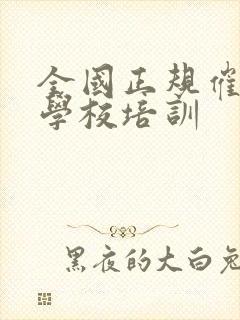 全國正規催
學校培訓
黑夜的大白兔